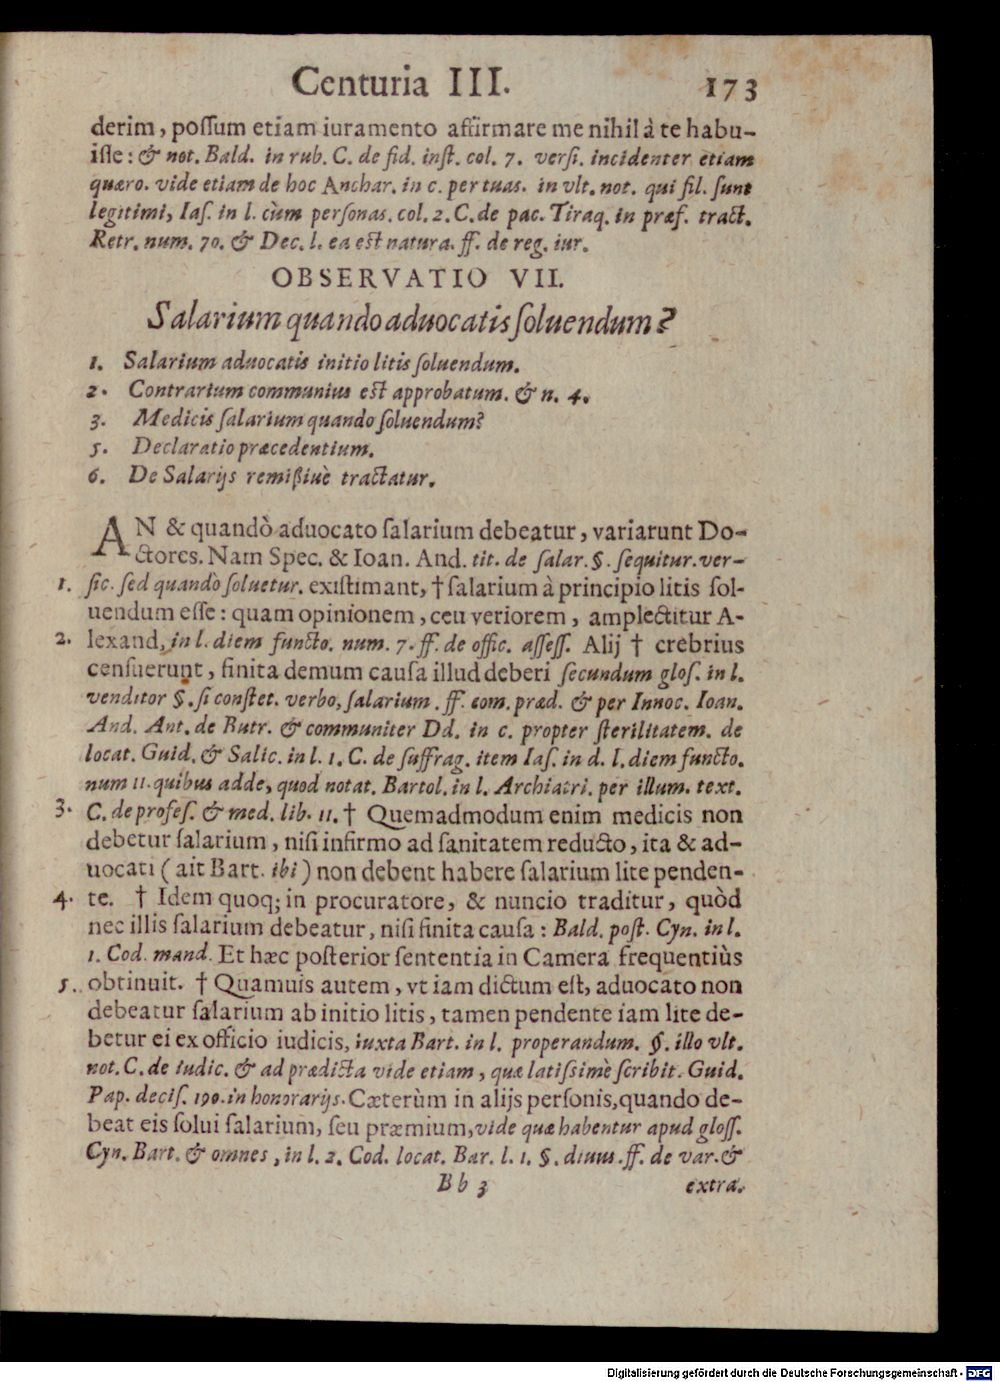 Centuria III. 173
derim, possum etiam iuramento affirmare me nihil à te habu-
isse: & not. Bald. in rub. C. de fid. inst. col. 7. versi. incidenter etiam
quæro. vide etiam de hoc Anchar. in c. per tuas. in vlt. not. qui fil. sunt
legitimi, Ias. in l. cùm personas. col. 2. C. de pac. Tiraq. in præf. tract.
Retr. num. 70. & Dec. l. ea est natura. ff. de reg. iur.
OBSERVATIO VII.
Salarium quando aduocatis soluendum?
1. Salarium aduocatis initio litis soluendum.
2. Contrarium communius est approbatum. & n. 4.
3. Medicis salarium quando soluendum?
5. Declaratio præcedentium.
6. De Salarijs remißiuè tractatur.
AN & quandò aduocato salarium debeatur, variarunt Do-
ctores. Nam Spec. & Ioan. And. tit. de salar. §. sequitur. ver-
1. sic. sed quandò soluetur. existimant, † salarium à principio litis sol-
uendum esse: quam opinionem, ceu veriorem, amplectitur A-
2. lexand. in l. diem functo. num. 7. ff. de offic. assess. Alij † crebrius
censuerunt, finita demum causa illud deberi secundum glos. in l.
venditor §. si constet. verbo, salarium. ff. com. præd. & per Innoc. Ioan.
And. Ant. de Butr. & communiter Dd. in c. propter sterilitatem. de
locat. Guid. & Salic. in l. 1. C. de suffrag. item Ias. in d. l. diem functo.
num 11. quibus adde, quod notat. Bartol. in l. Archiatri. per illum. text.
3. C. de profes. & med. lib. 11. † Quemadmodum enim medicis non
debetur salarium, nisi infirmo ad sanitatem reducto, ita & ad-
uocati (ait Bart. ibi) non debent habere salarium lite penden-
4. te. † Idem quoq; in procuratore, & nuncio traditur, quòd
nec illis salarium debeatur, nisi finita causa: Bald. post. Cyn. in l.
1. Cod. mand. Et hæc posterior sententia in Camera frequentiùs
5. obtinuit. † Quamuis autem, vt iam dictum est, aduocato non
debeatur salarium ab initio litis, tamen pendente iam lite de-
betur ei ex officio iudicis, iuxta Bart. in l. properandum. §. illo vlt.
not. C. de iudic. & ad prædicta vide etiam, quæ latissimè scribit. Guid.
Pap. decis. 190. in honorarijs. Cæterùm in alijs personis, quando de-
beat eis solui salarium, seu præmium, vide quæ habentur apud gloss.
Cyn. Bart. & omnes, in l. 2. Cod. locat. Bar. l. 1. §. diuus. ff. de var. &
Bb 3 extra.
Digitalisierung gefördert durch die Deutsche Forschungsgemeinschaft - DFG